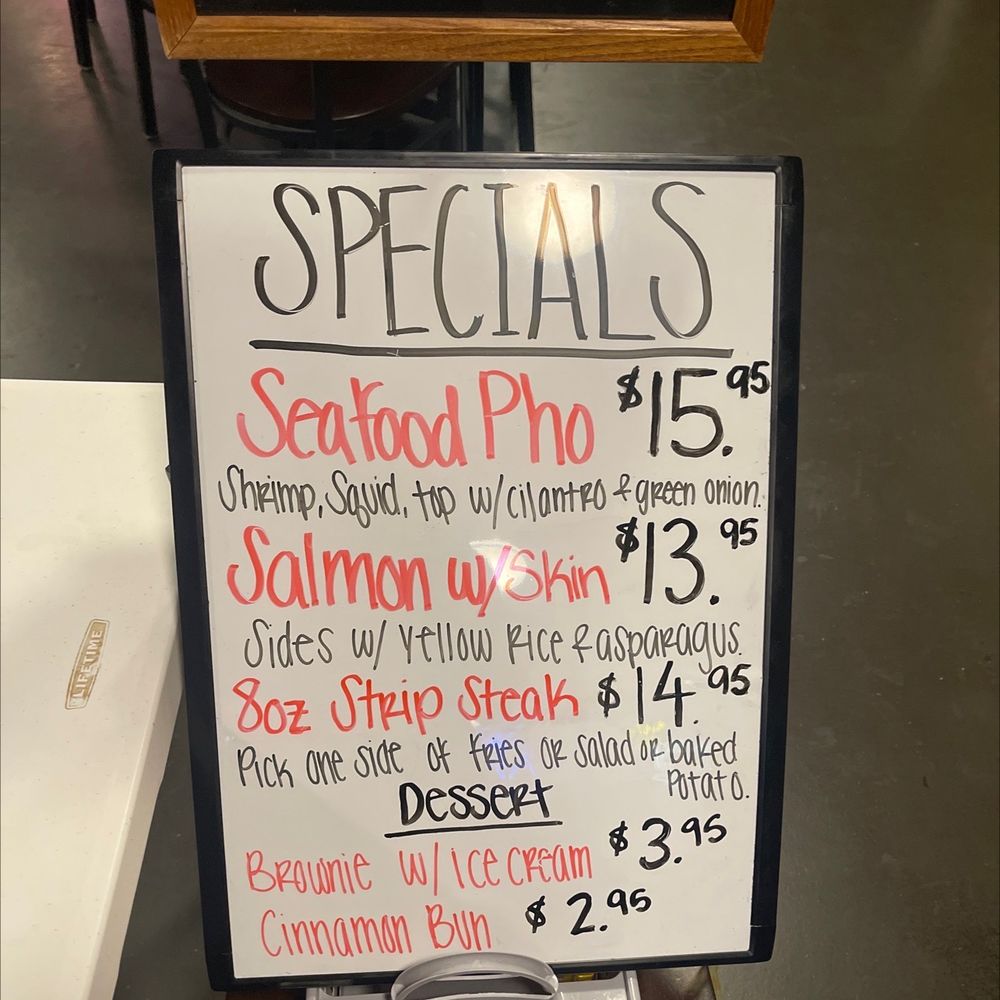 SPECIALS
Seafood Pho $15.95
Shrimp, Squid, top w/cilantro & green onion.
Salmon w/Skin $13.95
Sides w/ Yellow Rice & asparagus.
8oz Strip Steak $14.95
Pick one side of fries or salad or baked
Potato.
Dessert
Brownie w/ ice cream $3.95
Cinnamon Bun $2.95
LIFETIME